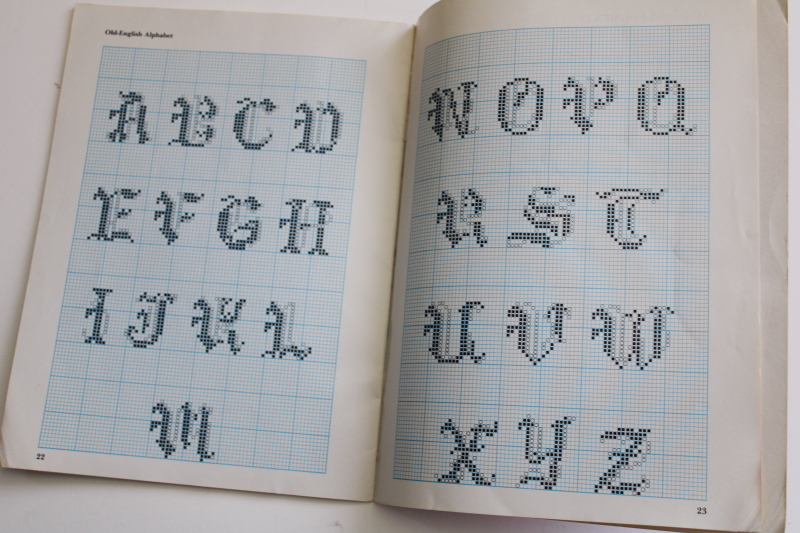 Old-English Alphabet
A B C D
E F G H
I J K L
M
22
N O P Q
R S T
U V W
X Y Z
23